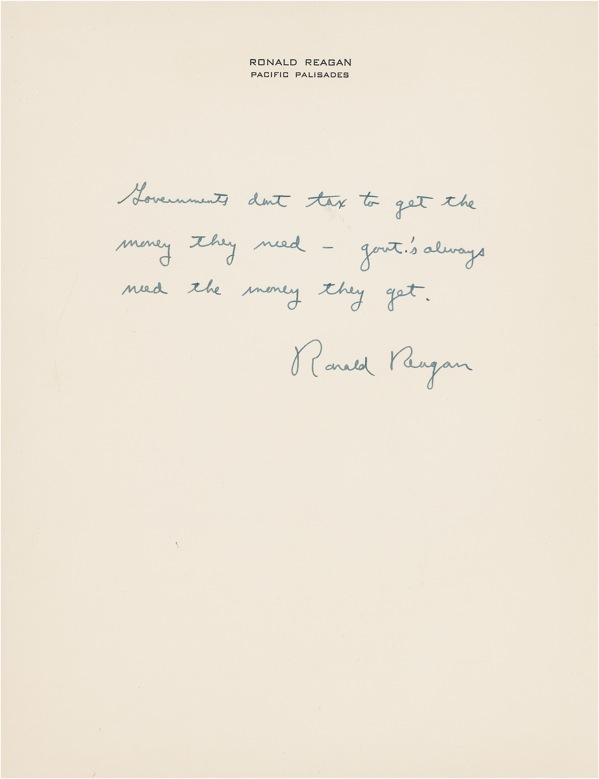 RONALD REAGAN
PACIFIC PALISADES
Governments dont tax to get the
money they need – govt.'s always
need the money they get.
Ronald Reagan